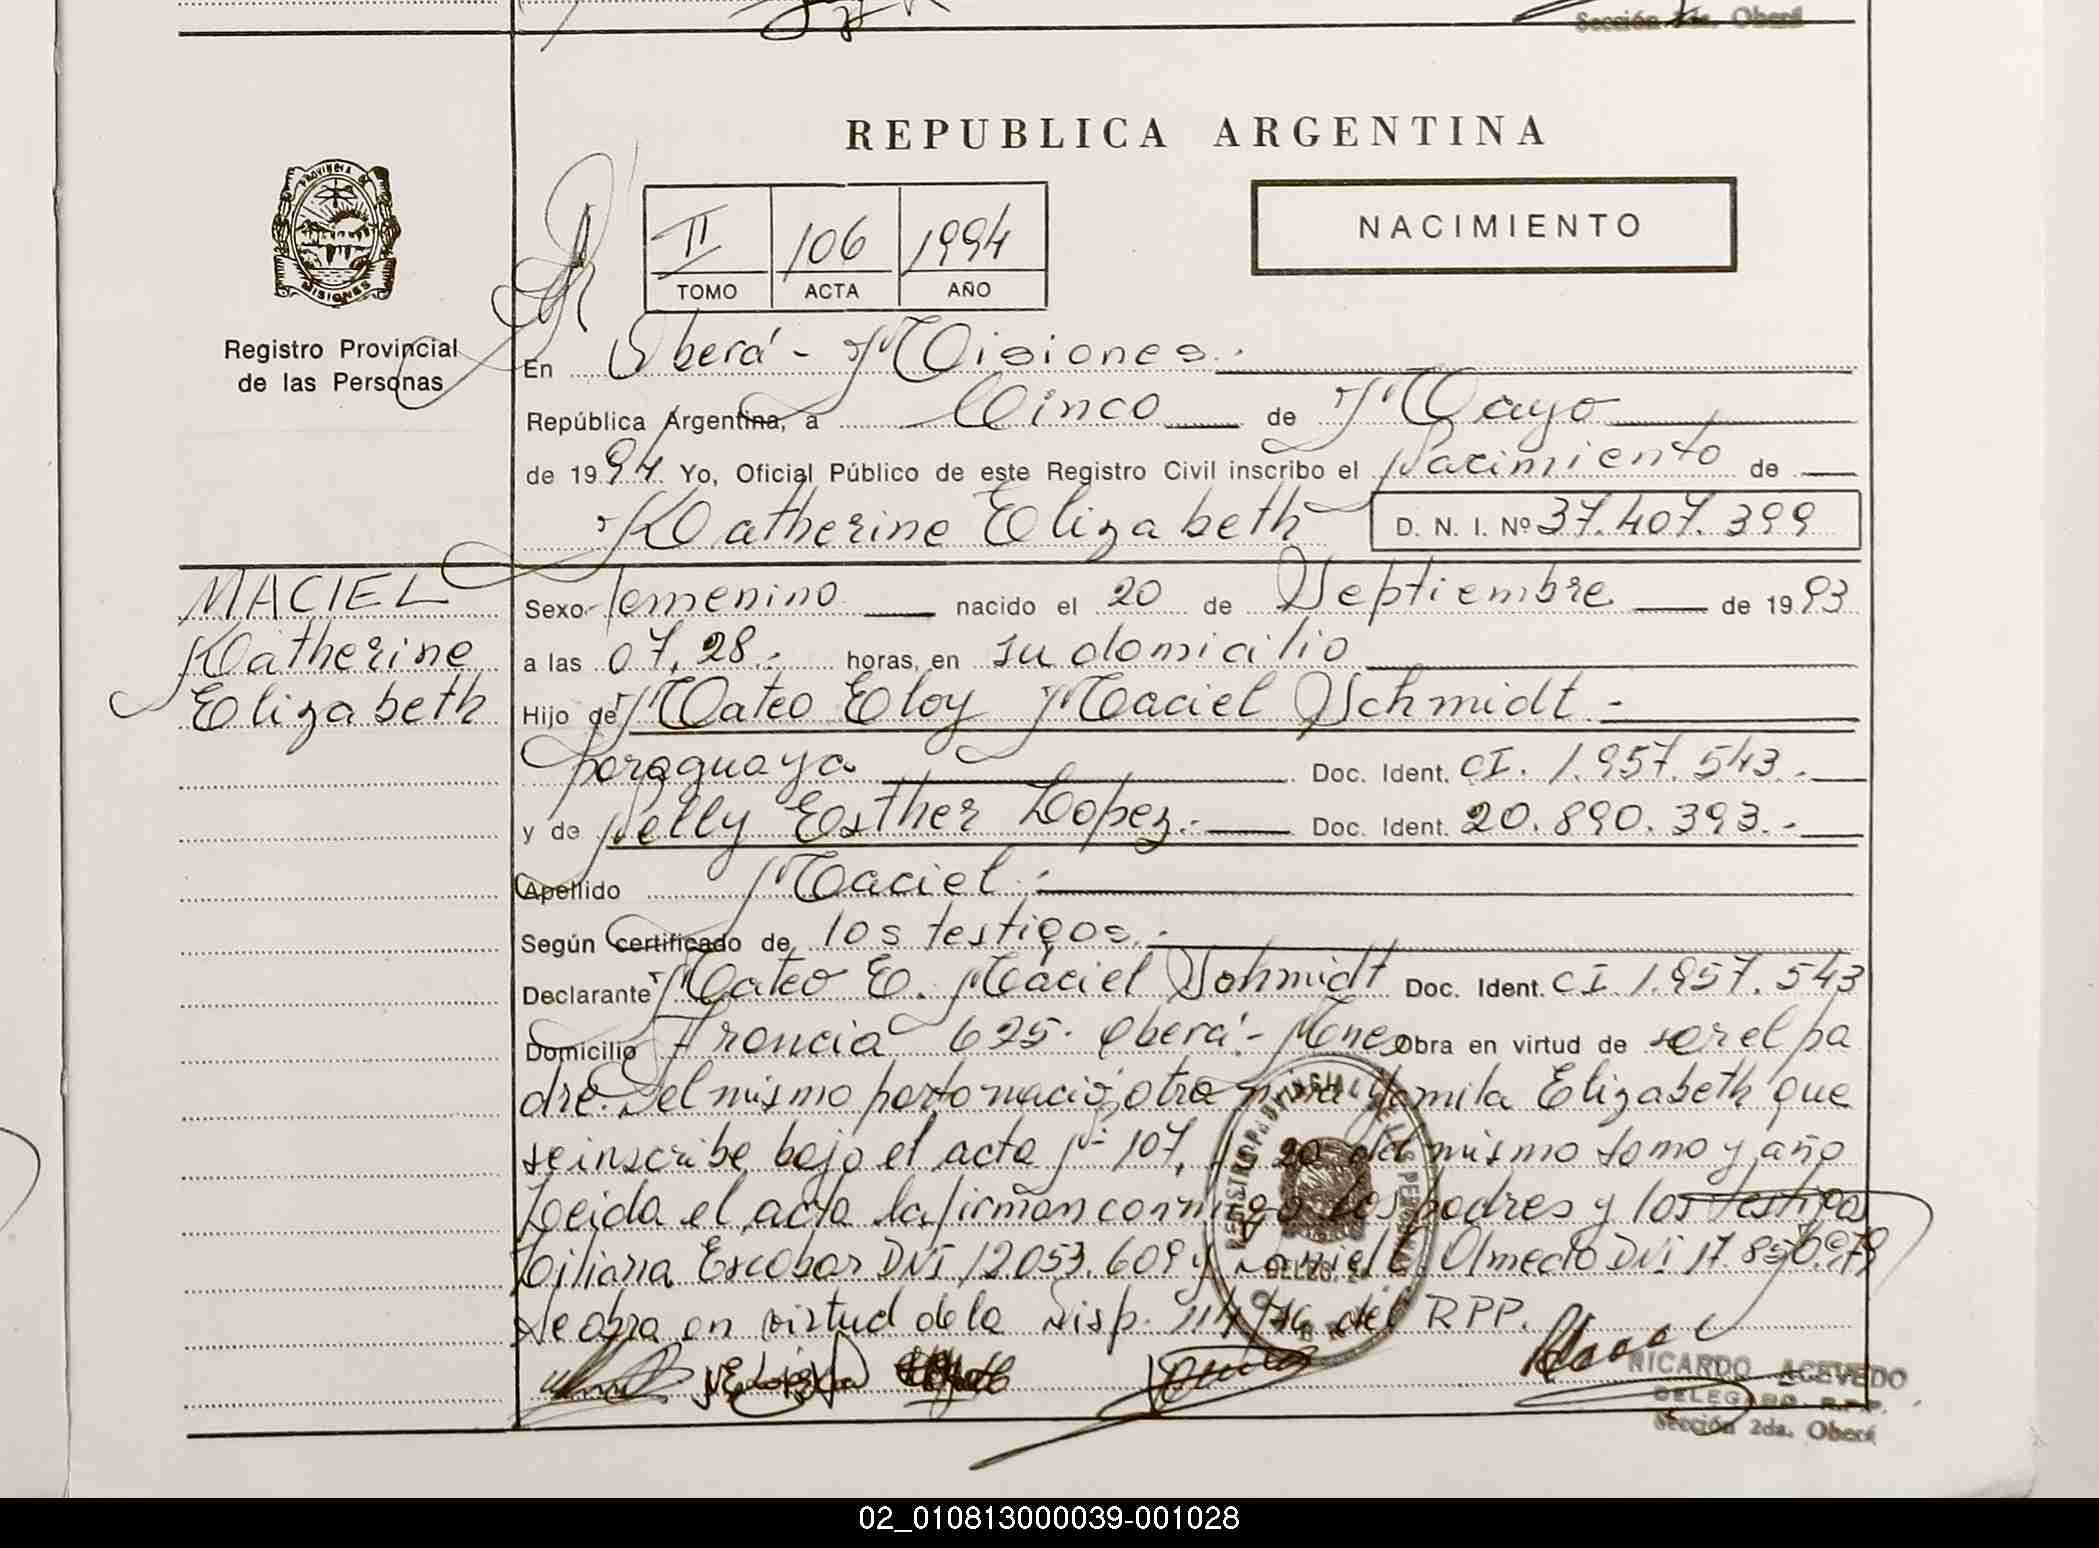 Sección 2da. Oberá
REPUBLICA ARGENTINA
PROVINCIA DE
MISIONES
Registro Provincial
de las Personas
II 106 1994
TOMO ACTA AÑO
NACIMIENTO
En Oberá - Misiones.-
República Argentina, a Cinco de Mayo
de 1994 Yo, Oficial Público de este Registro Civil inscribo el Nacimiento de
Katherine Elizabeth D. N. I. Nº 37.407.399
MACIEL
Katherine
Elizabeth
Sexo Femenino nacido el 20 de Septiembre de 1993
a las 07,28.- horas, en su domicilio
Hijo de Mateo Eloy Maciel Schmidt.-
paraguaya Doc. Ident. CI. 1.957.543.-
y de Nelly Esther Lopez.- Doc. Ident. 20.890.393.-
Apellido Maciel.-
Según certificado de los testigos.-
Declarante Mateo E. Maciel Schmidt Doc. Ident. CI 1.957.543
Domicilio Francia 625. Oberá - Mnes Obra en virtud de ser el pa
dre. Del mismo parto nació otra niña Yamila Elizabeth que
se inscribe bajo el acta Nº 107, del mismo tomo y año
Leida el acta la firman conmigo los padres y los testigos
Liliana Escobar DNI 12053.609 y Olmedo DNI 17.850.979
Se obra en virtud de la Disp. del RPP.
RICARDO ACEVEDO
DELEGADO R.P.P.
Sección 2da. Oberá
02_010813000039-001028